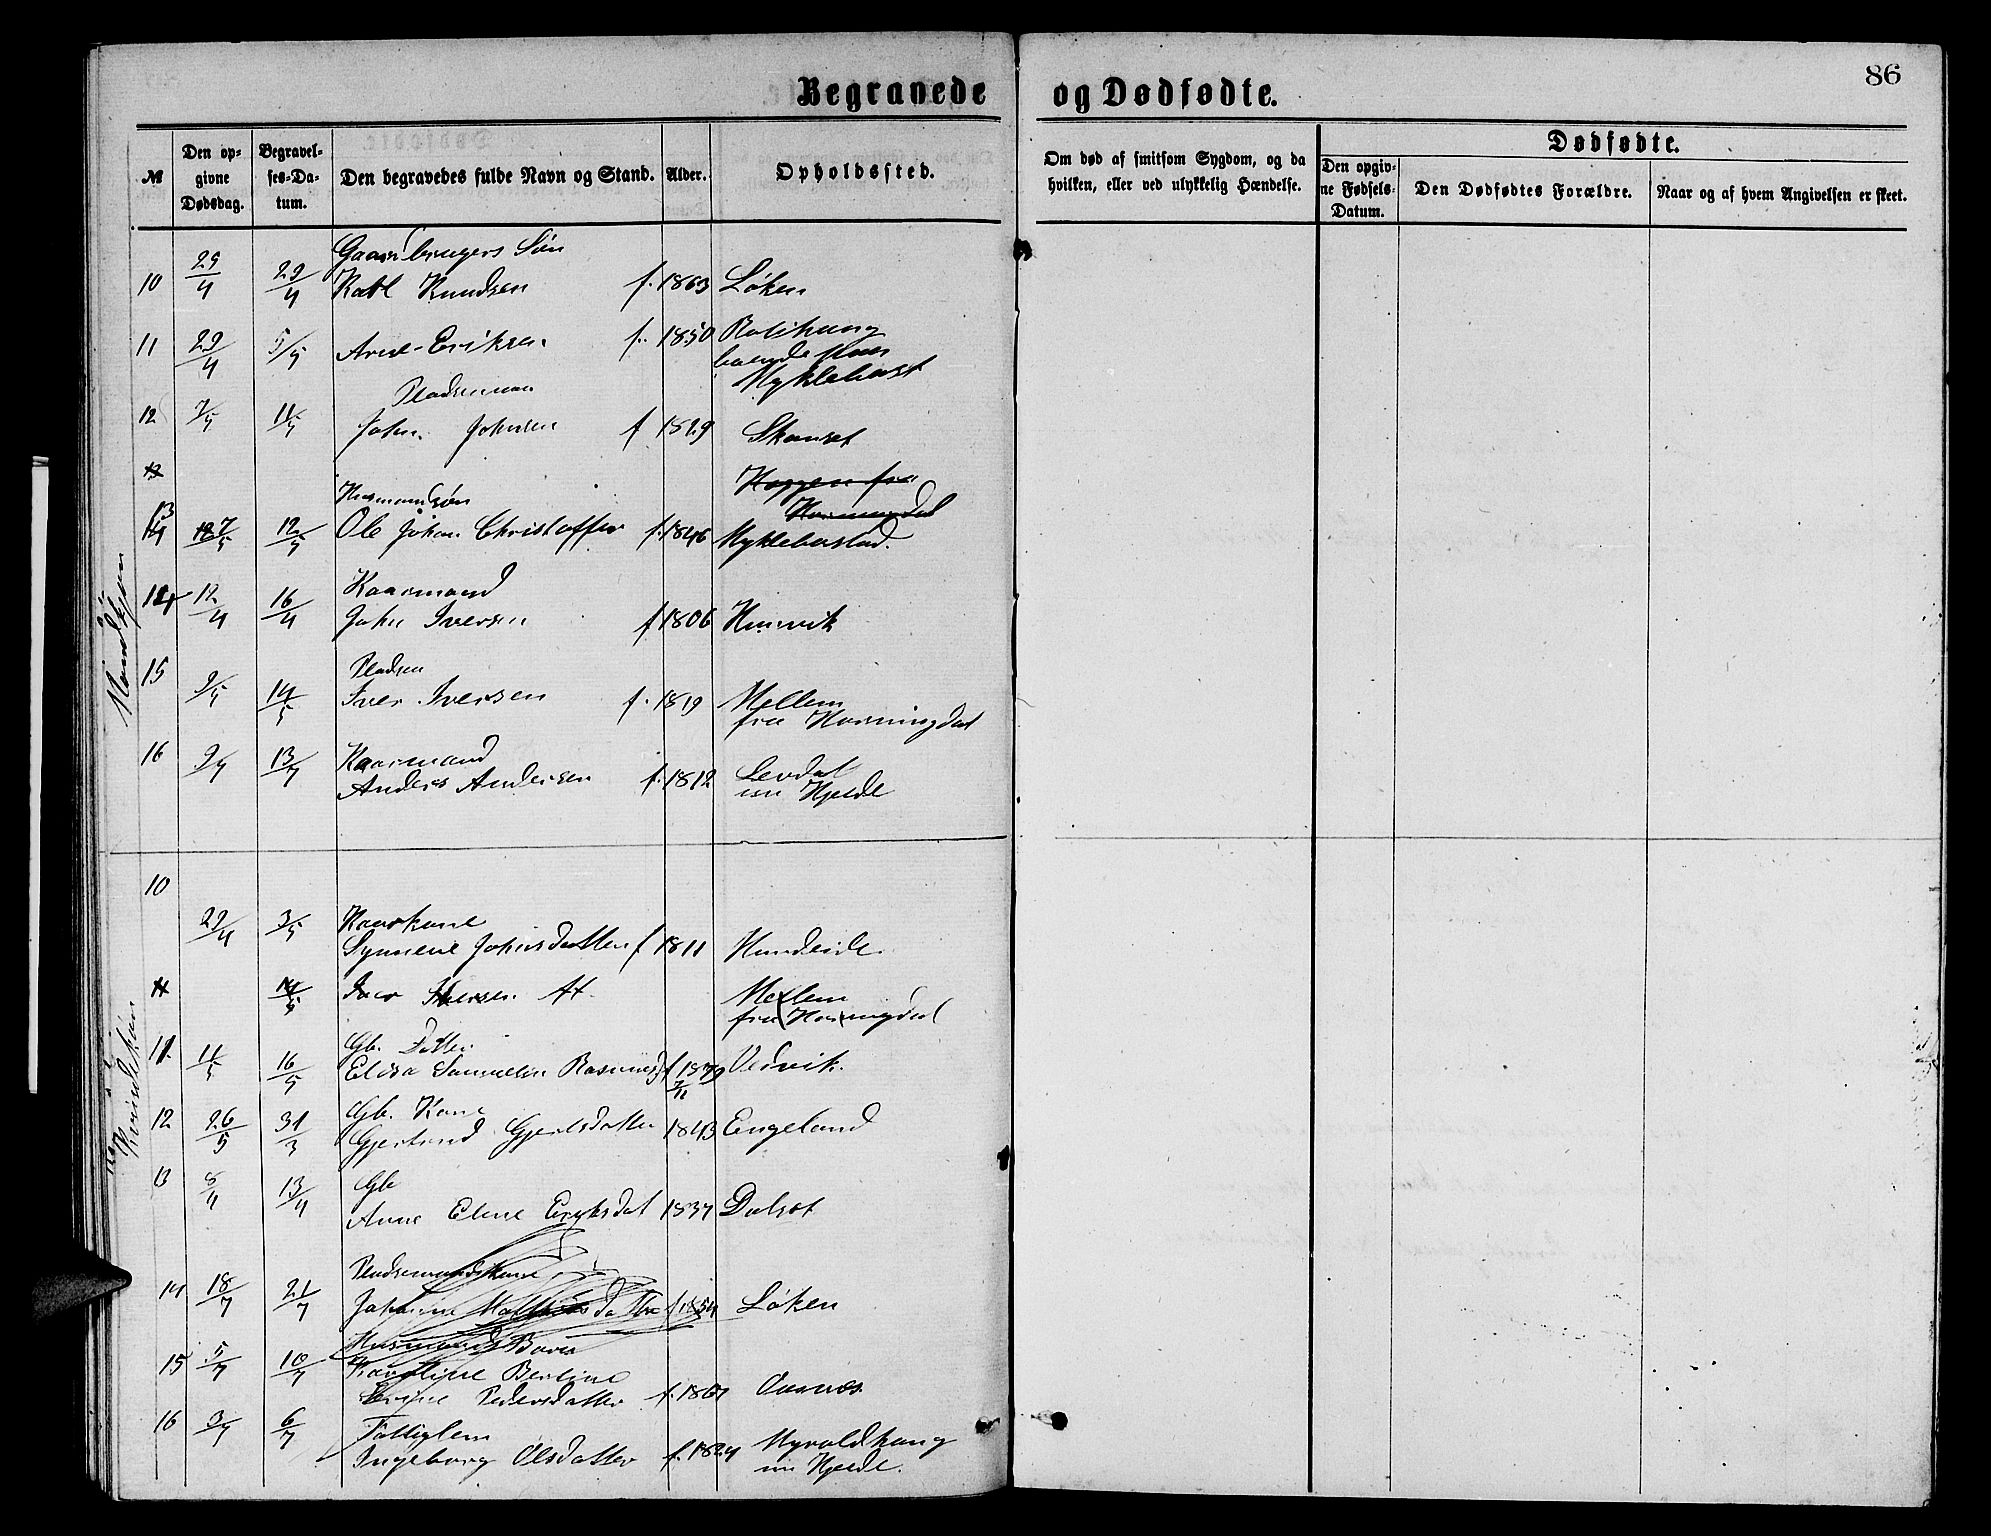 Begravede og Dødfødte.
86
№
Den opgivne Dødsdag.
Begravelses-Datum.
Den begravedes fulde Navn og Stand.
Alder.
Opholdssted.
Om død af smitsom Sygdom, og da hvilken, eller ved ulykkelig Hændelse.
Dødfødte.
Den opgivne Fødsels-Datum.
Den Dødfødtes Forældre.
Naar og af hvem Angivelsen er skeet.
Mandkjøn
Gaardbrugers Søn
10 29/4 29/4 Karl Knudsen f. 1863 Løken
11 29/4 5/5 Arne Eriksen f. 1850 Rolihaug
Myklebust
Pladsemand
12 7/5 11/5 John Johnsen f 1829 Skarset
13
Haggen fra
Hornindal
Husmandsøn
13 7/5 12/5 Ole Johan Christoffer f. 1846 Myklebustad.
Kaarmand
14 12/4 16/4 John Iversen f 1806 Hunvik
15 Pladsem
9/5 14/5 Iver Iversen f. 1819 Mellem
fra Hornningdal
16 9/7 13/7 Kaarmand
Anders Andersen f. 1812 Levdal
un Hjelle
Kvindekjøn
10
29/4 3/5 Kaarkone
Synneve Johnsdatter f 1811 Hundeide
11 14/5 Iver Iversen Mellem
fra Horningdal
Gb. Datter
11. 11/5 16/5 Elisa Samueline Rasmusd f 1879 Vedvik.
7/11
Gb. Kone
12 26/5 31/3 Gjertrud Gjertsdatter 1843 Engeland
13 8/4 13/4 Gb
Anne Eline Eriksdat 1837 Dalset
Pladsemandskone
14 18/7 21/7 Johanne Mathiasdatter f 1854 Løken
Husmands Barn
15 5/7 10/7 Karoline Berline
Pedersdatter f. 1867 Aarnes
16 3/7 6/7 Fattiglem
Ingeborg Olsdatter f. 1824 Myroldhaug
un Hjelle.